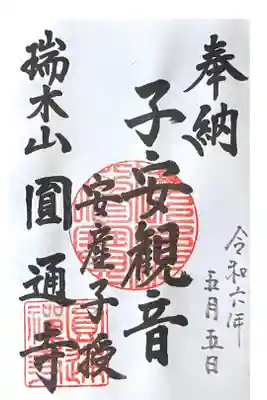 奉納
子安観音
安産子授
瑞木山 圓通寺
令和六年
五月五日